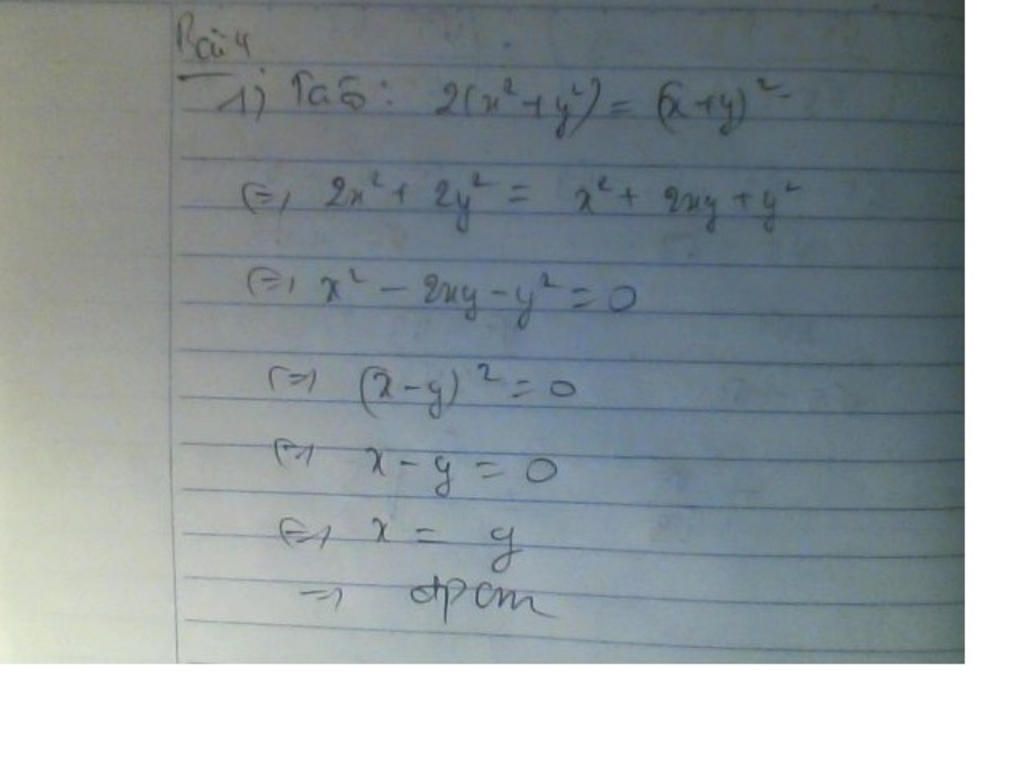 Bài 4
1) Ta có: 2(x² + y²) = (x + y)²
⇔ 2x² + 2y² = x² + 2xy + y²
⇔ x² - 2xy - y² = 0
⇔ (x - y)² = 0
⇔ x - y = 0
⇔ x = y
⇒ đpcm